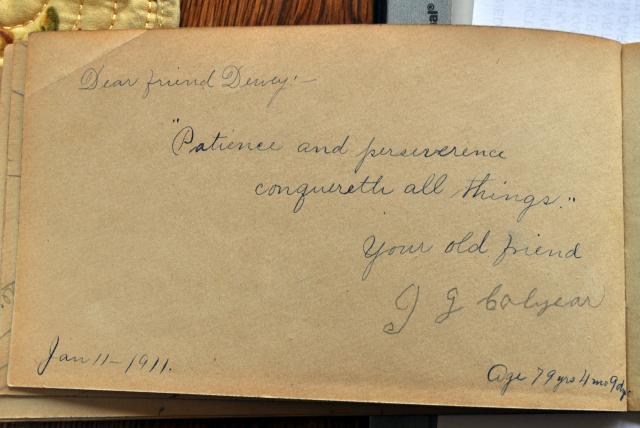 Dear friend Dewey:—
"Patience and perseverence
conquereth all things."
Your old friend
J G Colyear
Jan 11-1911.
Age 79 yrs 4 mo 9 dys